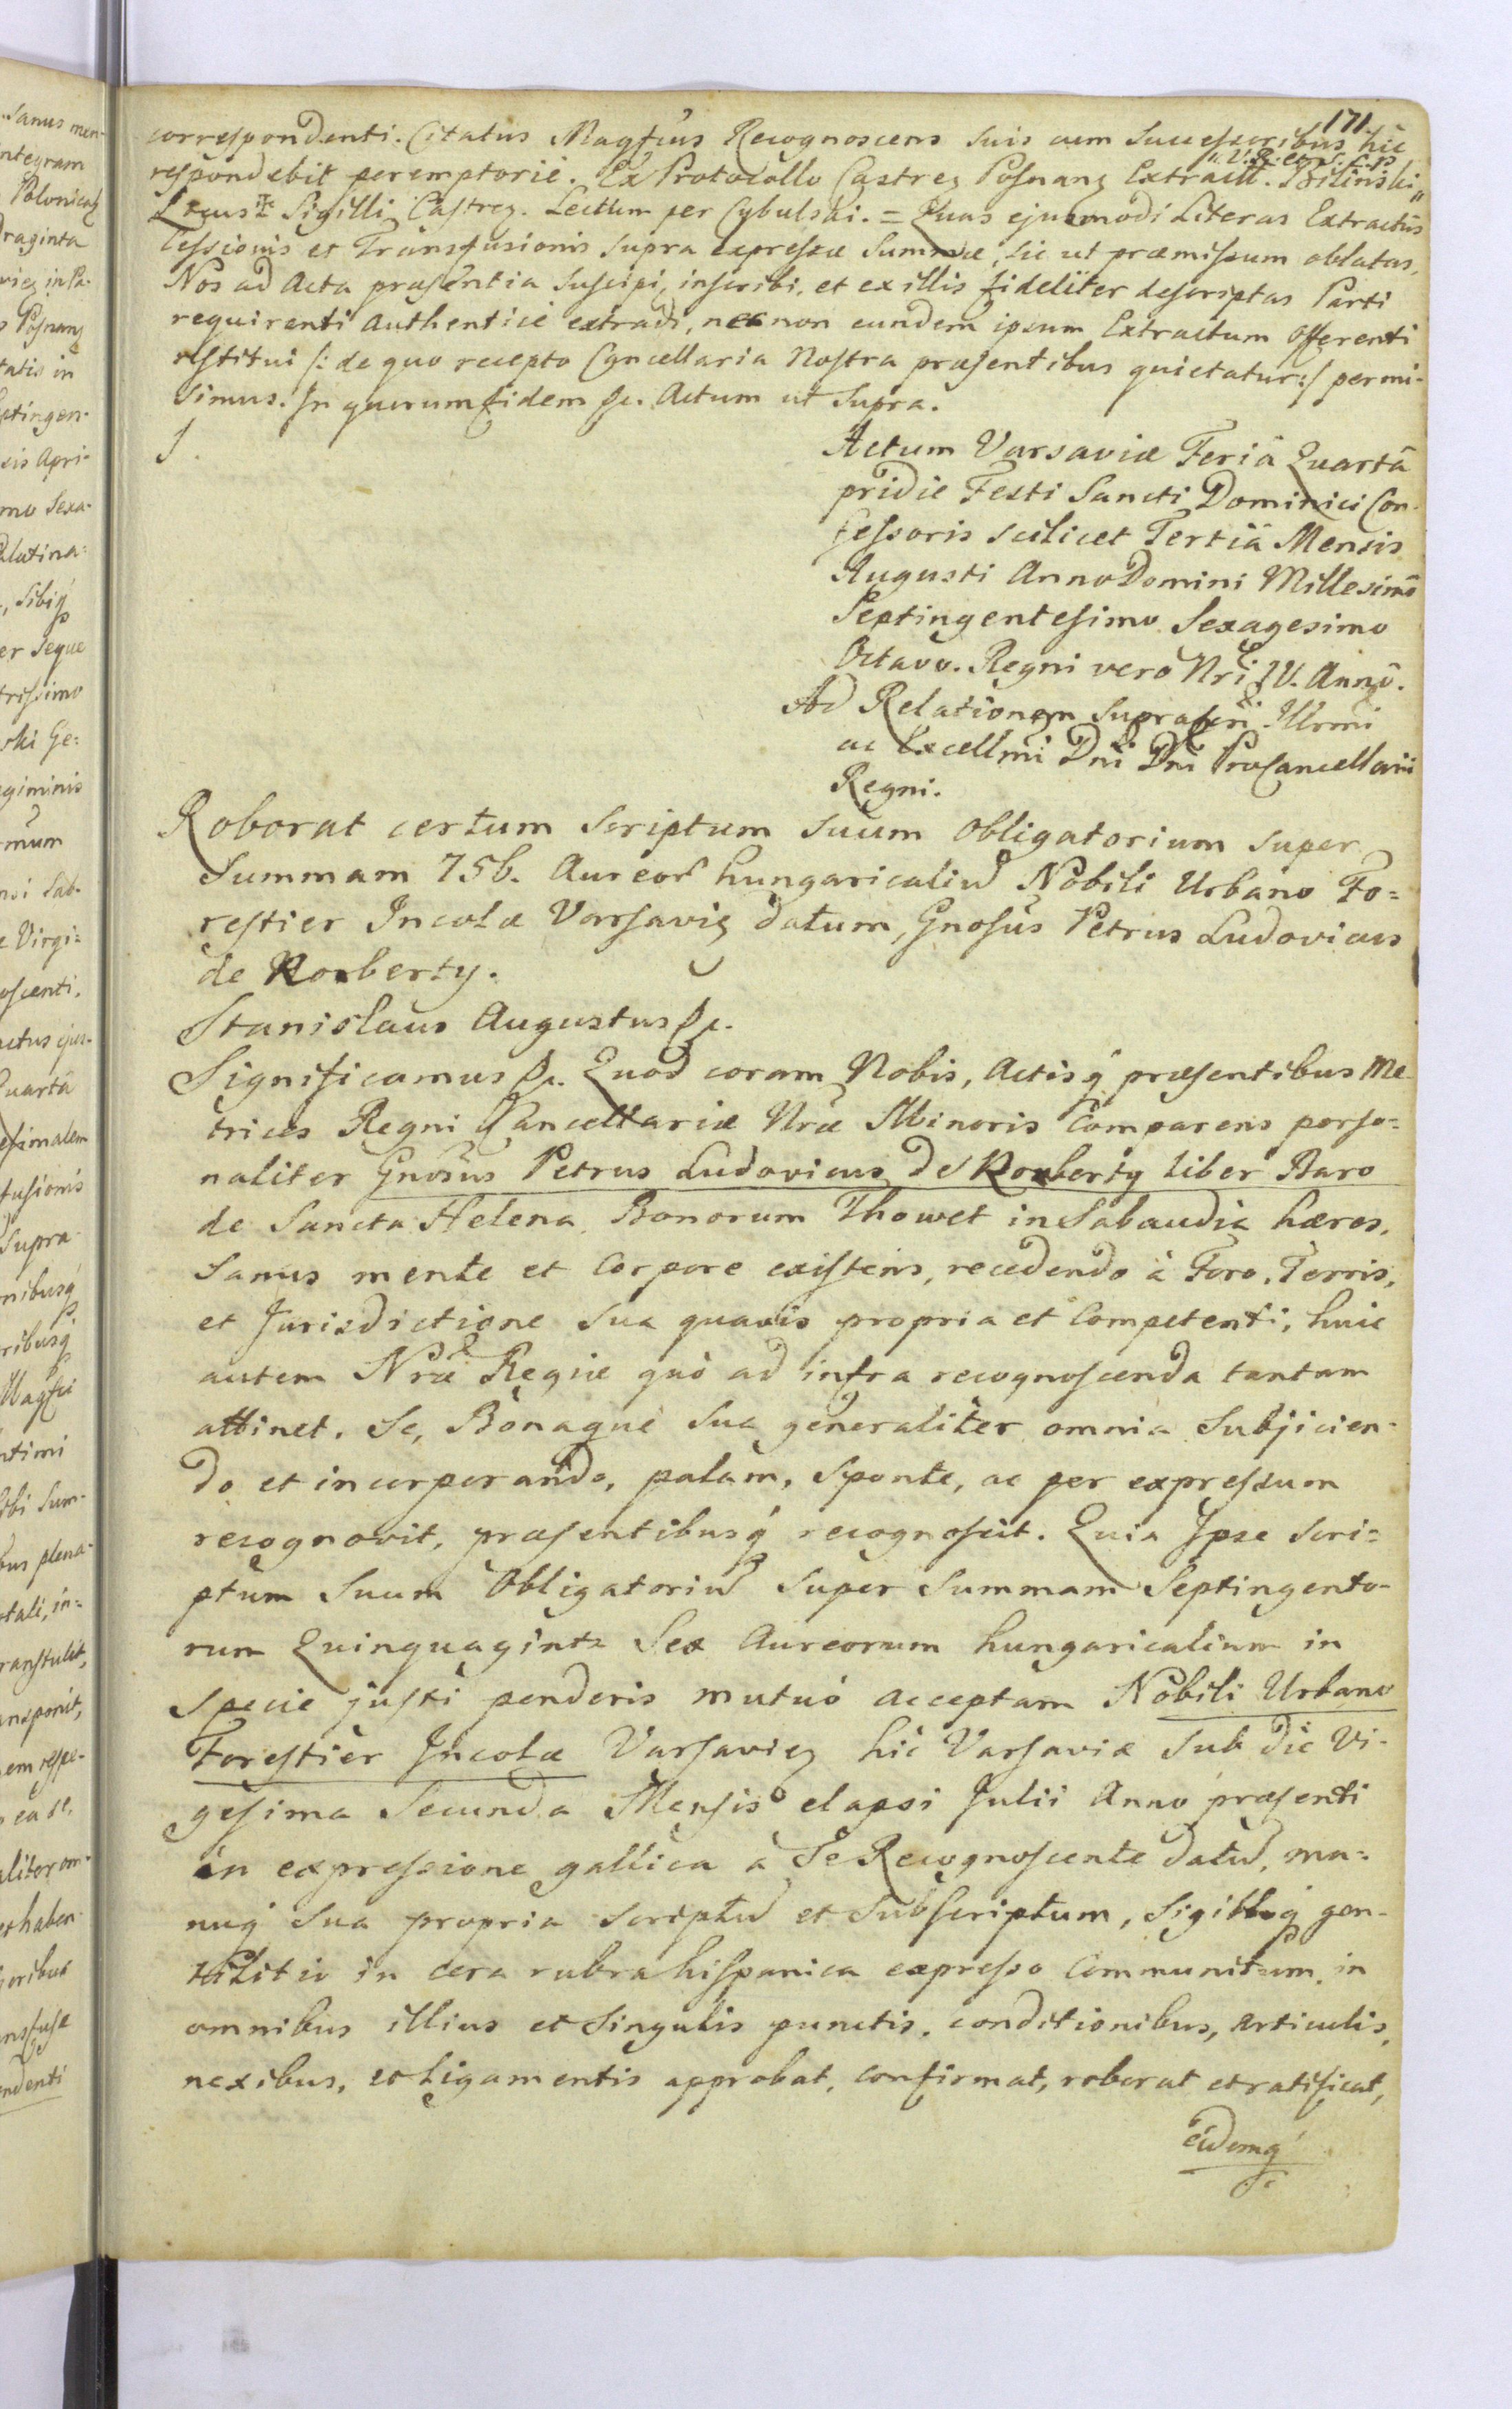 171.
correspondenti. Citatus Magfcus Recognoscens suis cum Successoribus hic
respondebit peremptorie. Ex Protocollo Castren Posnanen Extract. Bilinski
Locus Sigilli Castren. Lectum per Cybulski. = Quas ejusmodi Literas Extractus
Cessionis et Transfusionis supra expressæ Summæ, sic ut præmissum oblatas,
Nos ad Acta præsentia suscipi, inscribi, et ex illis fideliter descriptas Parti
requirenti authentice extradi, nec non eundem ipsum Extractum Offerenti
restitui /: de quo recepto Cancellaria Nostra præsentibus quietatur :/ permi-
simus. In quorum fidem &c. Actum ut supra.
Actum Varsaviæ Feriâ Quartâ
pridie Festi Sancti Dominici Con-
fessoris scilicet Tertiâ Mensis
Augusti Anno Domini Millesimô
Septingentesimo Sexagesimo
Octavo. Regni vero Nri IV. Annô.
Ad Relationem suprascri Illrmi
ac Excellmi Dni Dni ProCancellarii
Regni.
Roborat certum scriptum suum obligatorium super
Summam 756. Aureor hungaricaliũ Nobili Urbano Fo=
restier Incolæ Varsavien datum, Gnosus Petrus Ludovicus
de Norberty.
Stanislaus Augustus &c.
Significamus &c. Quod coram Nobis, Actisq præsentibus Me
trices Regni Cancellariæ Nræ Minoris Comparens perso=
naliter Gnosus Petrus Ludovicus de Norberty liber Baro
de Sancta Helena Bonorum Thowet in Sabaudia hæres,
Sanus mente et Corpore existens, recedendo à Foro, Terris,
et Jurisdictione sua quavis propria et Competenti, huic
autem Nræ Regiæ quò ad infra recognoscenda tantum
attinet, Se, Bonaque sua generaliter omnia Subjicien-
do et incorporando, palam, sponte, ac per expressum
recognovit, præsentibusq recognoscit. Quia Ipse Scri=
ptum suum Obligatoriũ super Summam Septingento-
rum Quinquaginta Sex Aureorum hungaricalium in
specie justi ponderis mutuò acceptam Nobili Urbano
Forestier Incolæ Varsavien hic Varsaviæ sub die Vi-
gesima Secunda Mensis elapsi Julii Anno præsenti
in expressione gallica à Se Recognoscente datũ, ma=
nuq sua propria scriptũ et subscriptum, sigilloq gen-
tilitio in cera rubra hispanica expresso Communitum, in
omnibus illius et singulis punctis, conditionibus, articulis,
nexibus, et ligamentis approbat, confirmat, roborat et ratificat,
eidemq